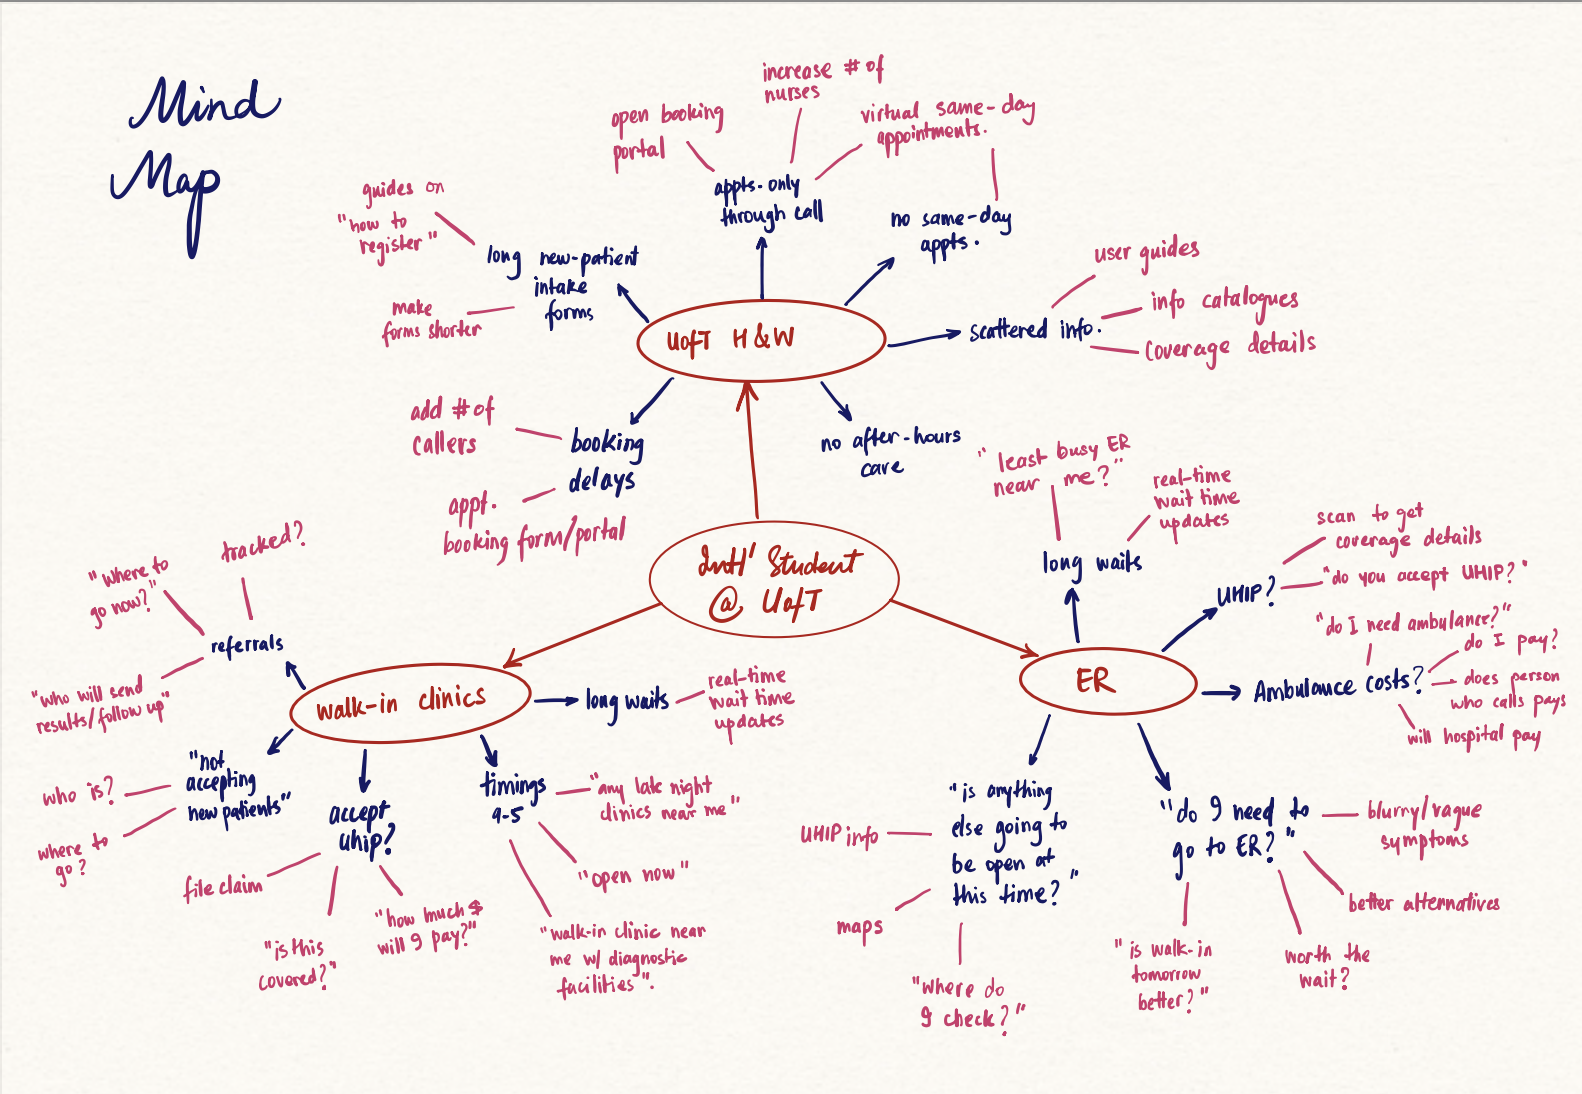 Mind
Map
increase # of
nurses
open booking
portal
virtual same-day
appointments.
appts-only
through call
no same-day
appts.
guides on
"how to
register"
long new-patient
intake
forms
make
forms shorter
user guides
info catalogues
scattered info.
coverage details
UofT H&W
add # of
callers
booking
delays
appt.
booking form/portal
no after-hours
care
Intl' Student
@ UofT
"least busy ER
near me?"
real-time
wait time
updates
long waits
scan to get
coverage details
UHIP?
"do you accept UHIP?"
"do I need ambulance?"
do I pay?
Ambulance costs?
does person
who calls pays
will hospital pay
ER
"is anything
else going to
be open at
this time?"
UHIP info
maps
"where do
I check?"
"do I need to
go to ER?"
blurry/vague
symptoms
better alternatives
worth the
wait?
"is walk-in
tomorrow
better?"
tracked?
"where to
go now?"
referrals
"who will send
results/follow up"
walk-in clinics
long waits
real-time
wait time
updates
"not
accepting
new patients"
who is?
where to
go?
accept
uhip?
file claim
"is this
covered?"
"how much $
will I pay?"
timings
9-5
"any late night
clinics near me"
"open now"
"walk-in clinic near
me w/ diagnostic
facilities".